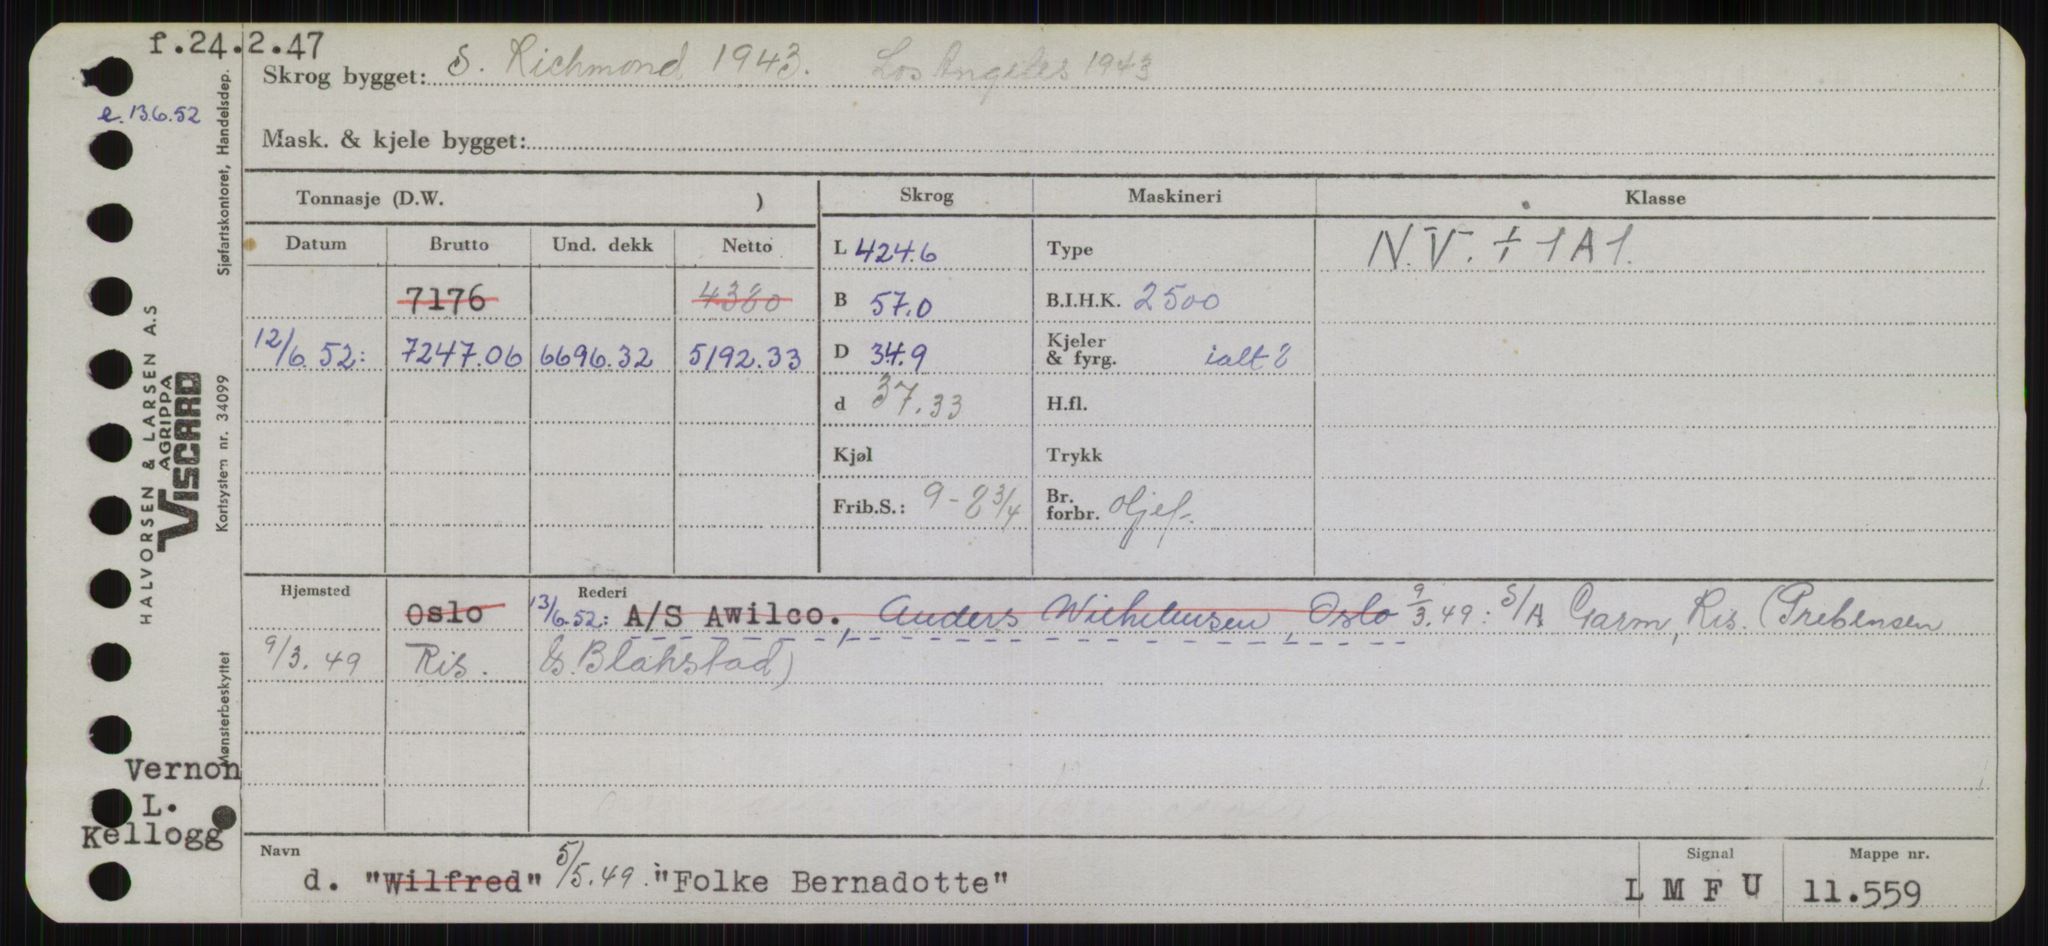 f.24.2.47
e. 13.6.52
Skrog bygget: S. Richmond 1943. Los Angeles 1943
Mask. & kjele bygget:
Tonnasje (D.W. ) Skrog Maskineri Klasse
Datum Brutto Und. dekk Netto L 424.6 Type N.V. + 1A1.
7176 4380 B 57.0 B.I.H.K. 2500
12/6.52: 7247.06 6696.32 5192.33 D 34.9 Kjeler & fyrg. ialt 8
d 37.33 H.fl.
Kjøl Trykk
Frib.S.: 9-8 3/4 Br. forbr. oljef.
Hjemsted Rederi
Oslo 13/6.52: A/S Awilco., Anders Wilhelmsen, Oslo 9/3.49: S/A Garm, Ris. (Prebensen
9/3.49 Ris. & Blakstad)
Navn Signal Mappe nr.
d. "Wilfred" 5/5.49. "Folke Bernadotte" L M F U 11.559
Vernon
L.
Kellogg
HALVORSEN & LARSEN A.S
AGRIPPA
VISCARD
Sjøfartskontoret, Handelsdep.
Kortsystem nr. 34099
Mønsterbeskyttet